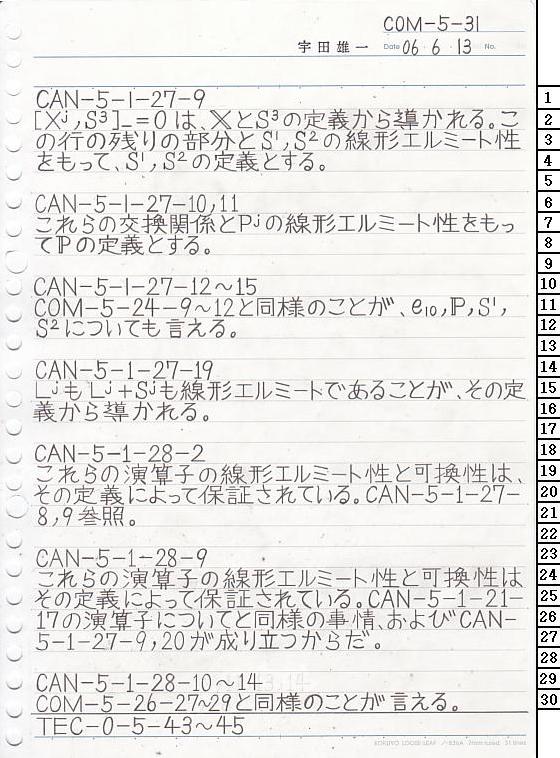 COM-5-31
宇田雄一 Date 06・6・13 No.
CAN-5-1-27-9
[Xʲ,S³]₋=0は、𝕏とS³の定義から導かれる。こ
の行の残りの部分とS¹,S²の線形エルミート性
をもって、S¹,S²の定義とする。
CAN-5-1-27-10,11
これらの交換関係とPʲの線形エルミート性をもっ
てℙの定義とする。
CAN-5-1-27-12〜15
COM-5-24-9〜12と同様のことが、e₁₀,ℙ,S¹,
S²についても言える。
CAN-5-1-27-19
LʲもLʲ+Sʲも線形エルミートであることが、その定
義から導かれる。
CAN-5-1-28-2
これらの演算子の線形エルミート性と可換性は、
その定義によって保証されている。CAN-5-1-27-
8,9参照。
CAN-5-1-28-9
これらの演算子の線形エルミート性と可換性は
その定義によって保証されている。CAN-5-1-21-
17の演算子についてと同様の事情、およびCAN-
5-1-27-9,20が成り立つからだ。
CAN-5-1-28-10〜14
COM-5-26-27〜29と同様のことが言える。
TEC-0-5-43〜45
KOKUYO LOOSE-LEAF ノ-836A 7mm ruled 31 lines
1
2
3
4
5
6
7
8
9
10
11
12
13
14
15
16
17
18
19
20
21
22
23
24
25
26
27
28
29
30